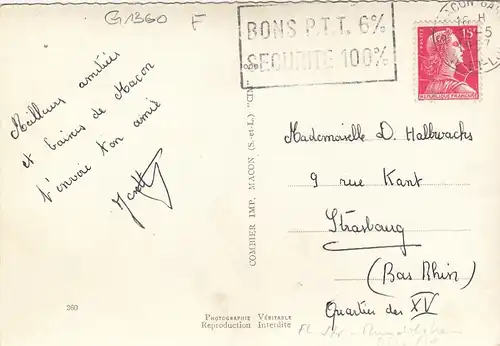 G1360 F
BONS P.T.T. 6%
SECURITE 100%
15F
REPUBLIQUE FRANCAISE
Meilleurs amitiés
et baises de Macon
t'envoie ton amie
COMBIER IMP. MACON (S.-et-L.) "CIM"
Mademoiselle D. Halbwachs
9 rue Kant
Strasbourg
(Bas Rhin)
Quartier des XV
260
PHOTOGRAPHIE VÉRITABLE
Reproduction Interdite